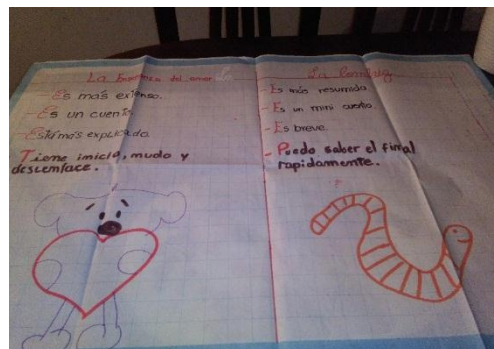 La del amor.
- Es más extenso.
- Es un cuento.
- Está más explicado.
Tiene inicio, nudo y
desenlace.
La lombriz
- Es más resumida.
- Es un mini cuento.
- Es breve.
- Puedo saber el final
rapidamente.